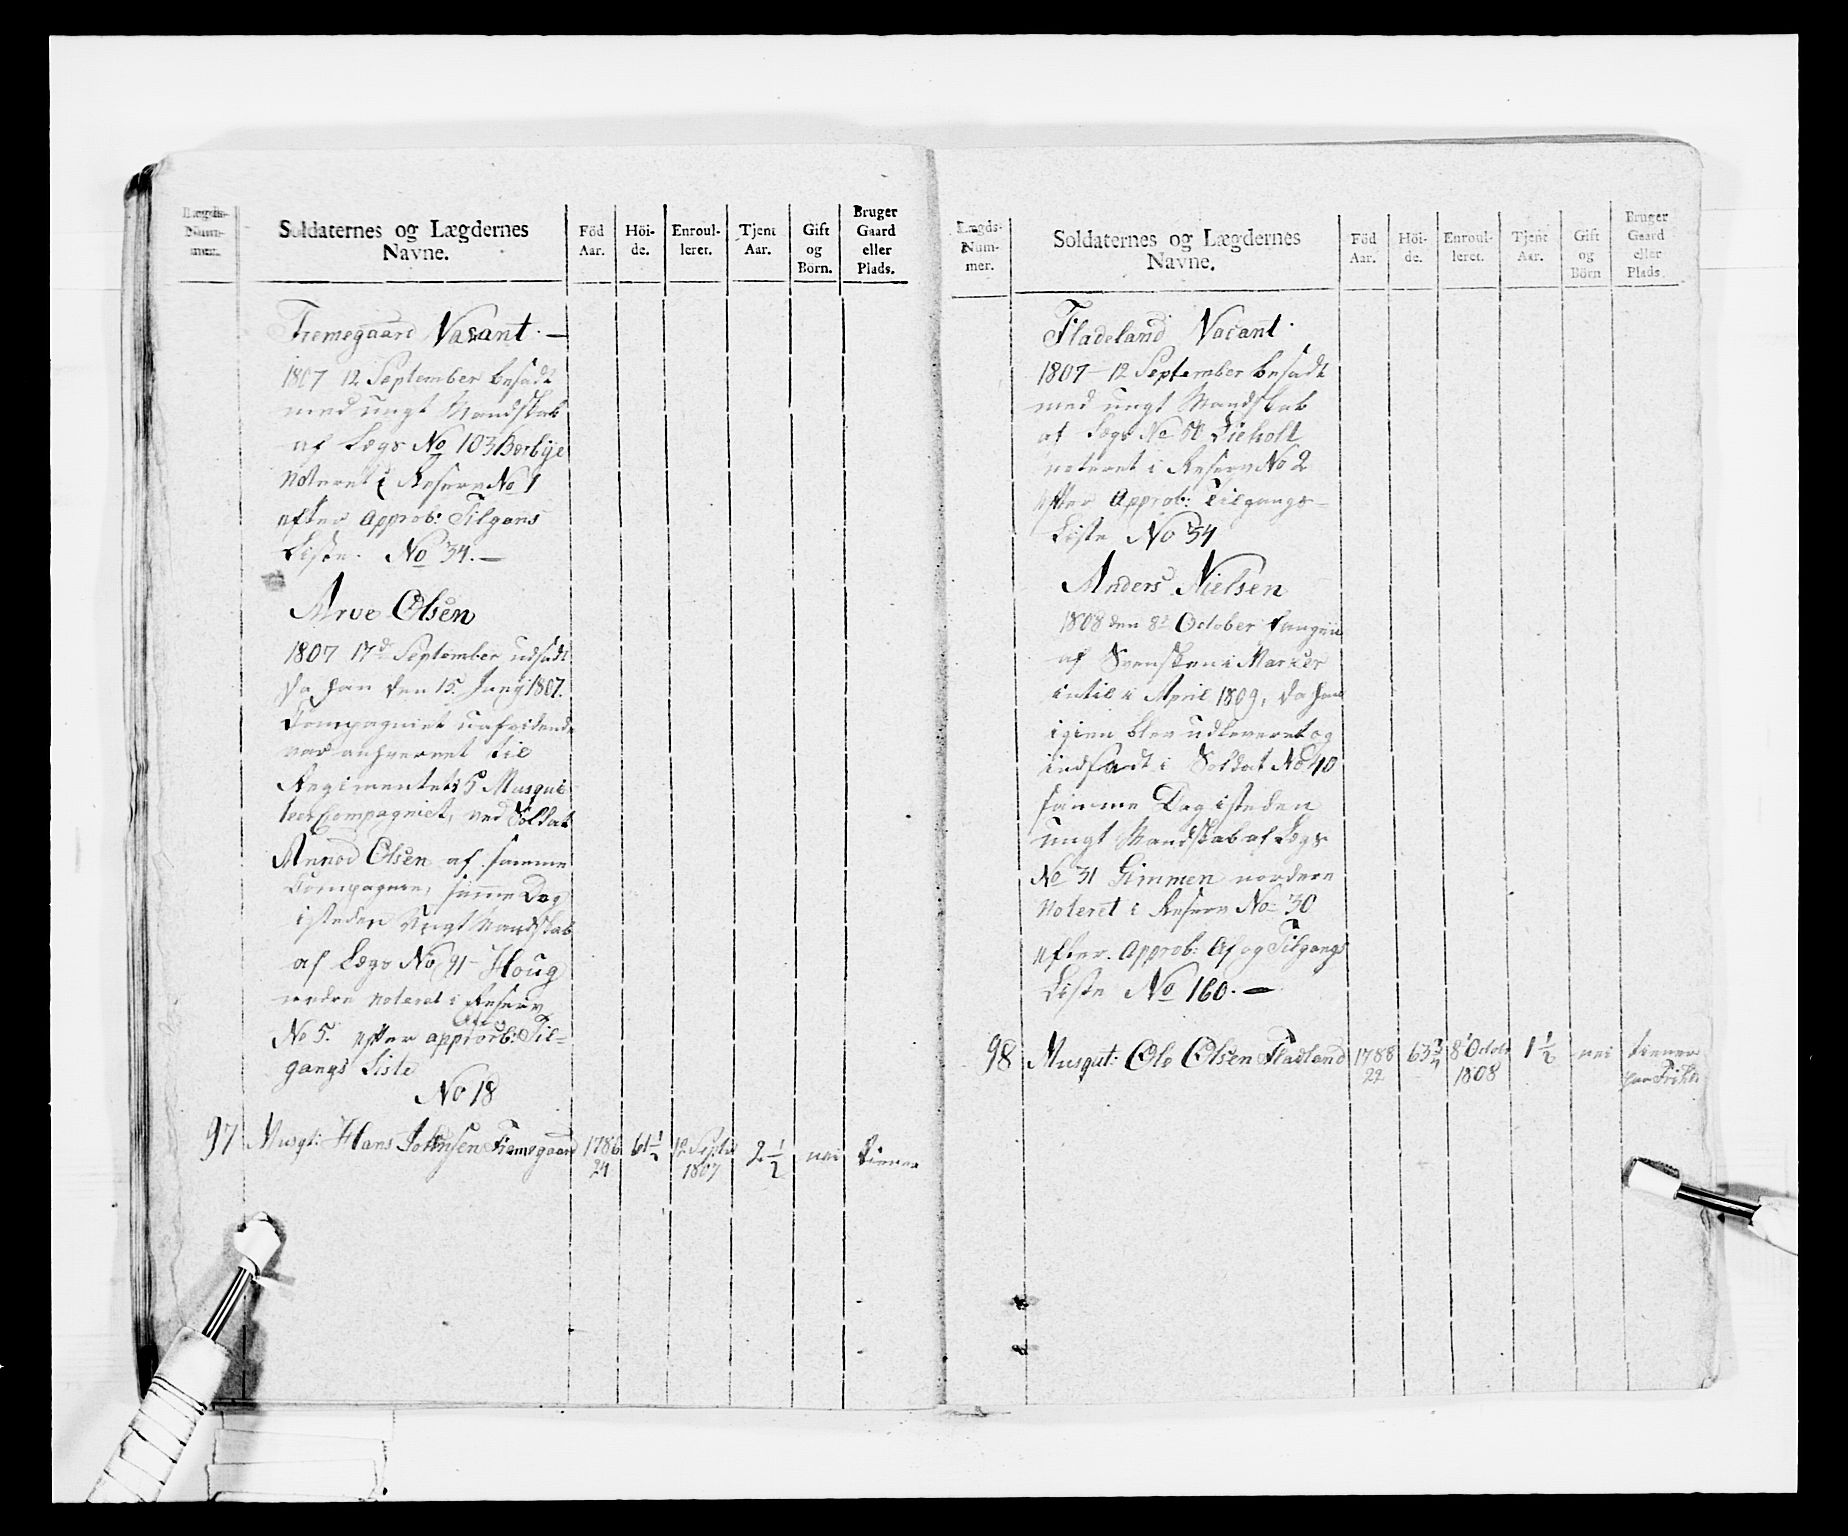 Lægds-
Num-
mer.
Soldaternes og Lægdernes
Navne.
Föd
Aar.
Höi-
de.
Enroul-
leret.
Tjent
Aar.
Gift
og
Börn.
Bruger
Gaard
eller
Plads.
Fremegaard Vacant. —
1807 12 September besadt
med ungt Mandskab
af Lægs No 103 Borbye
Noteret i Reserv No 1
efter Approb: Tilgans
Liste. No 34. —
Arve Olsen
1807 17d September udsadt
da han den 15 Junÿ 1807.
Compagniet uafvidende
var anhvervet til
Regimentets 5 Musque
teer Compagniet, ved Soldat
Annod Olsen af samme
Compagnie, samme Dag
isteden Ungt Mandskab
af Lægs No 91 Houg
nedre noteret i Reserv
No 5. efter approb: Af og Til=
gangs Liste
No 18
97 Musqt: Hans Johnsen Fremegaard 1786 61 1/2 12 Septbr 2 1/2 nei tiener
24 1807
Lægds-
Num-
mer.
Soldaternes og Lægdernes
Navne.
Föd
Aar.
Höi-
de.
Enroul-
leret.
Tjent
Aar.
Gift
og
Börn
Bruger
Gaard
eller
Plads.
Fladeland Vacant.
1807 – 12 September besadt
med ungt Mandskab
af Lægs No 50 Lieholt
noteret i Reserv No 2
efter Approb: Tilgangs-
Liste No 34
Anders Nielsen
1808 den 8d October fangen
af Svensken i Marker
intil i April 1809, da han
igien blev udleveret og
indsadt i Soldat No 40
samme Dag isteden
ungt Mandskab af Lægs
No 31 Gimmen nordere
Noteret i Reserv No 30
efter. Approb: Af og Tilgangs
Liste No 160. —
98 Musqut: Ole Olsen Fladland 1788 63 3/4 8 Octobr 1 1/2 nei tiener
22 1808